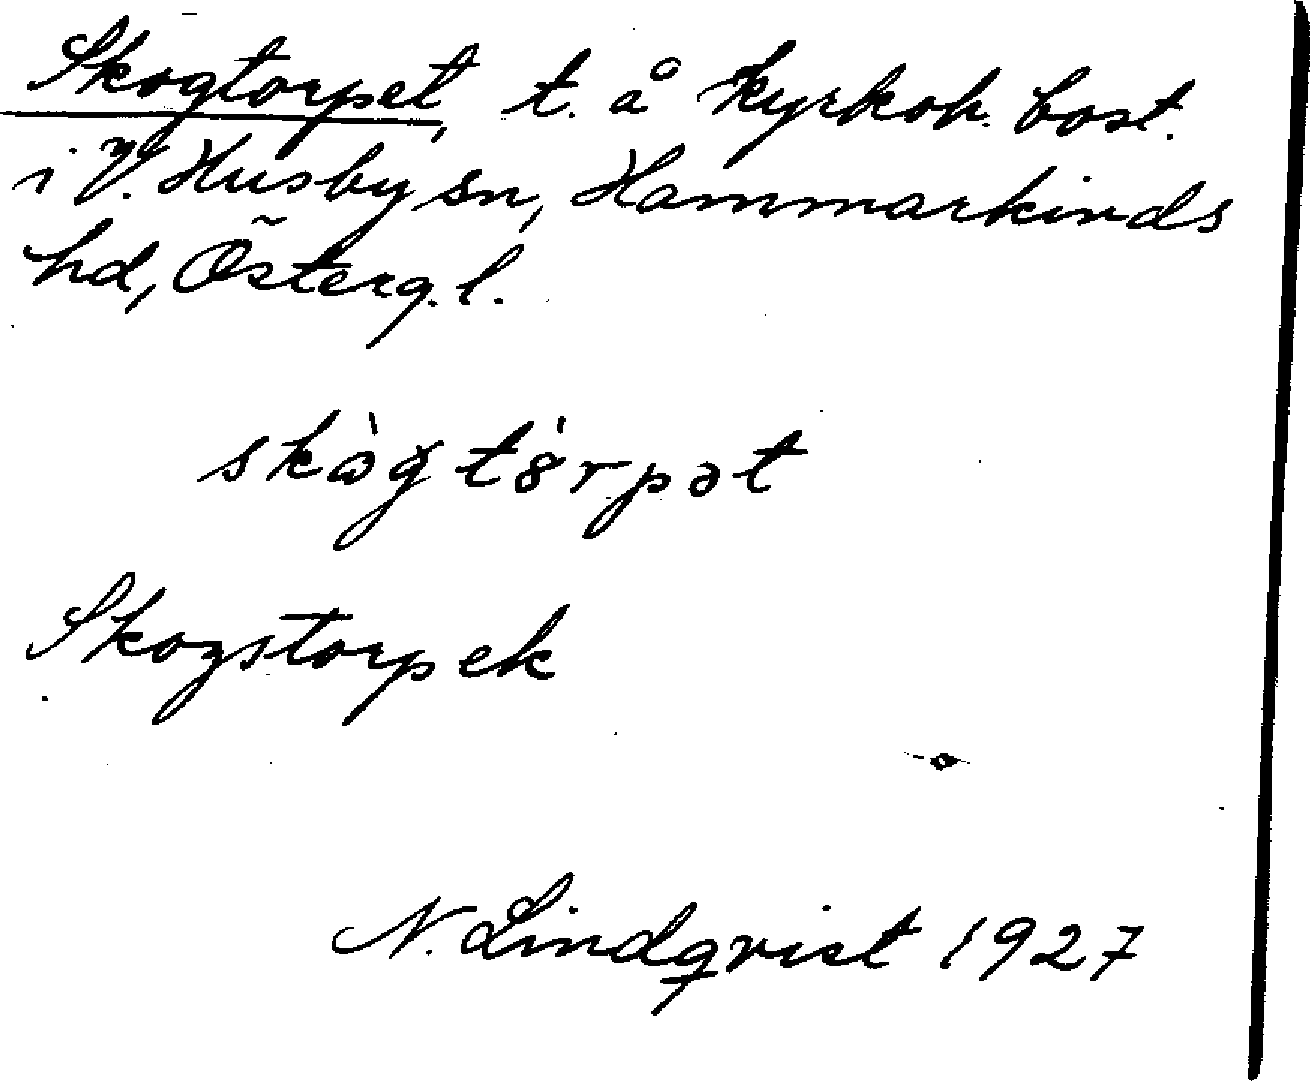 Skogtorpet, t. å kyrkoh. bost.
i V. Husby sn, Hammarkinds
hd, Österg. l.
skògtórpət
Skogstorp ek
N. Lindqvist 1927